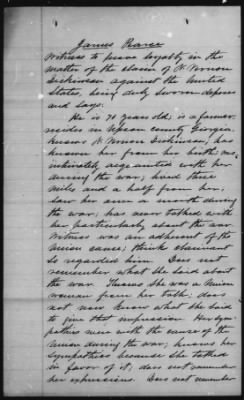 James Pearce
Witness to prove loyalty in the
matter of the claim of N. Vernon
Dickinson against the United
States, being duly sworn deposes
and says:
He is 70 years old, is a farmer
resides in Upson County Georgia.
Knows N. Vernon Dickinson, has
known her from her birth, was
intimately acquainted with her
during the war; lived three
miles and a half from her;
saw her once a month during
the war; has never talked with
her particularly about the war
Witness was an adherent of the
Union cause; thinks claimant
so regarded him. Does not
remember what she said about
the war. Knows she was a Union
woman from her talk; does
not now know what she said
to give that impression. Her sym-
pathies were with the cause of the
Union during the war; knows her
sympathies because she talked
in favor of it; does not remember
her expressions. Does not remember